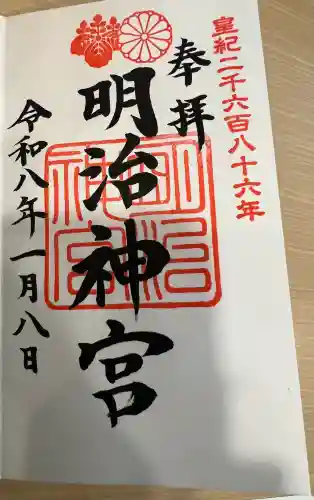 皇紀二千六百八十六年
奉拝
明治神宮
明治神宮
令和八年一月八日